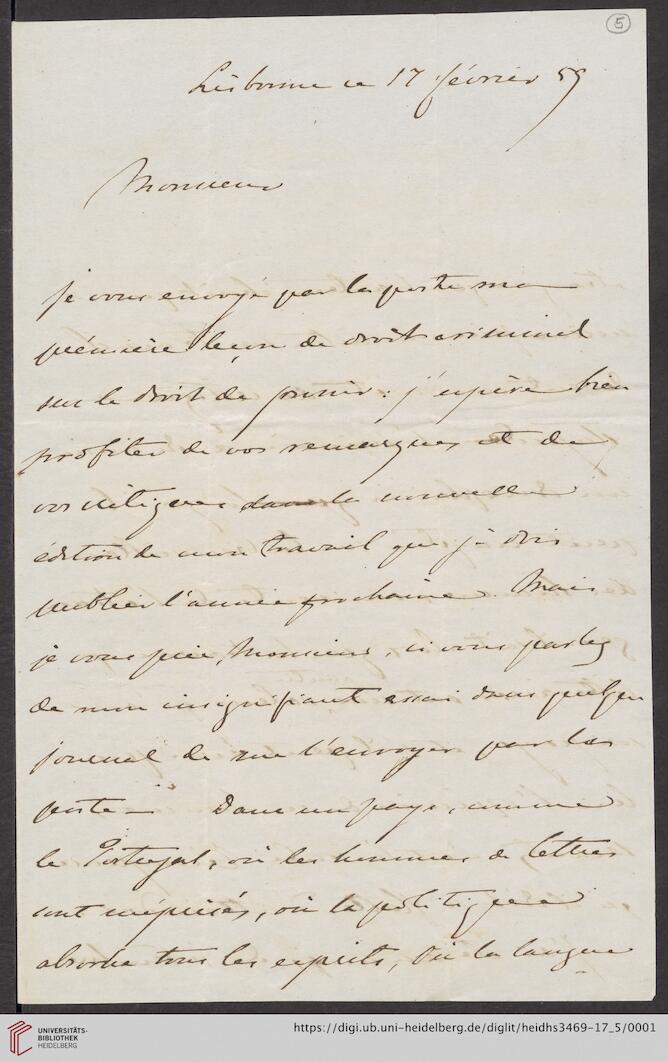 5
Lisbonne ce 17 février 59
Monsieur
Je vous envoye par la poste ma
prémière leçon de droit criminel
sur le droit de punir: j'espère bien
profiter de vos remarques et de
vos critiques dans la nouvelle
édition de mon travail que je dois
publier l'année prochaine. Mais
je vous prie, Monsieur, si vous parlez
de mon insignifiant essai dans quelque
journal de me l'envoyer par la
poste — Dans un pays, comme
le Portugal, où les hommes de lettres
sont méprisés, où la politique
absorbe tous les esprits, où la langue
UNIVERSITÄTS-
BIBLIOTHEK
HEIDELBERG
https://digi.ub.uni-heidelberg.de/diglit/heidhs3469-17_5/0001